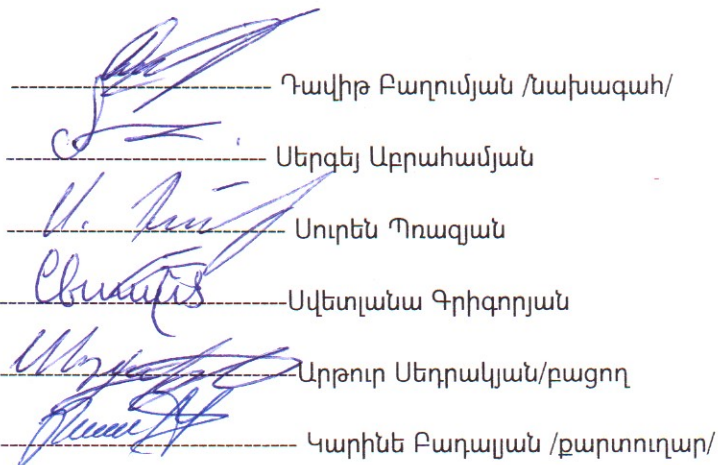 ------------------------------ Դավիթ Բաղումյան /նախագահ/
------------------------------ Սերգեյ Աբրահամյան
------------------------------ Սուրեն Պռազյան
------------------------------Սվետլանա Գրիգորյան
------------------------------Արթուր Սեդրակյան/բացող
------------------------------ Կարինե Բադալյան /քարտուղար/